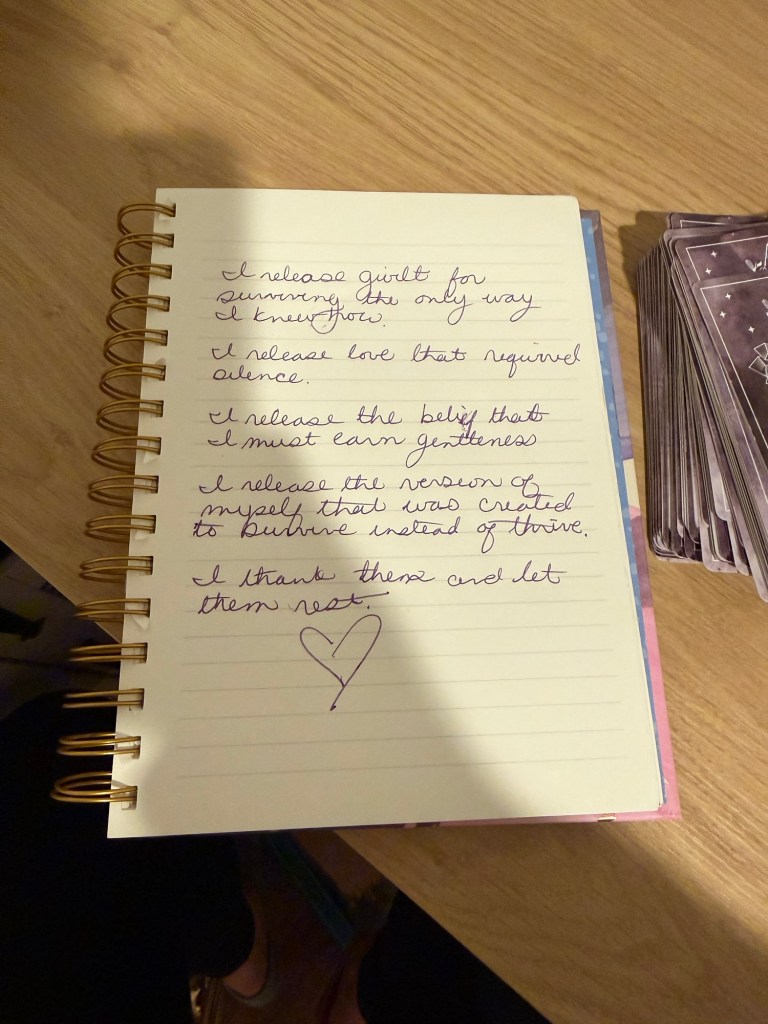 I release guilt for
surviving the only way
I knew how.
I release love that required
silence.
I release the belief that
I must earn gentleness
I release the version of
myself that was created
to survive instead of thrive.
I thank them and let
them rest.